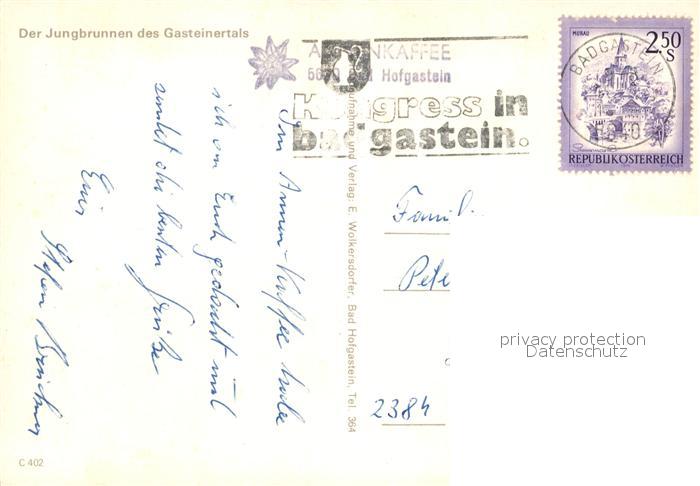 Der Jungbrunnen des Gasteinertals
KAFFEE
Hofgastein
Kongress in
badgastein.
MURAU
2.50
S
REPUBLIK ÖSTERREICH
BADGASTEIN
Im Annen-Kaffee habe
ich an Euch gedacht und
sendet die besten Grüße
Eure
Aufnahme und Verlag: E. Wolkersdorfer, Bad Hofgastein, Tel. 364
Famil
Pete
2384
privacy protection
Datenschutz
C 402